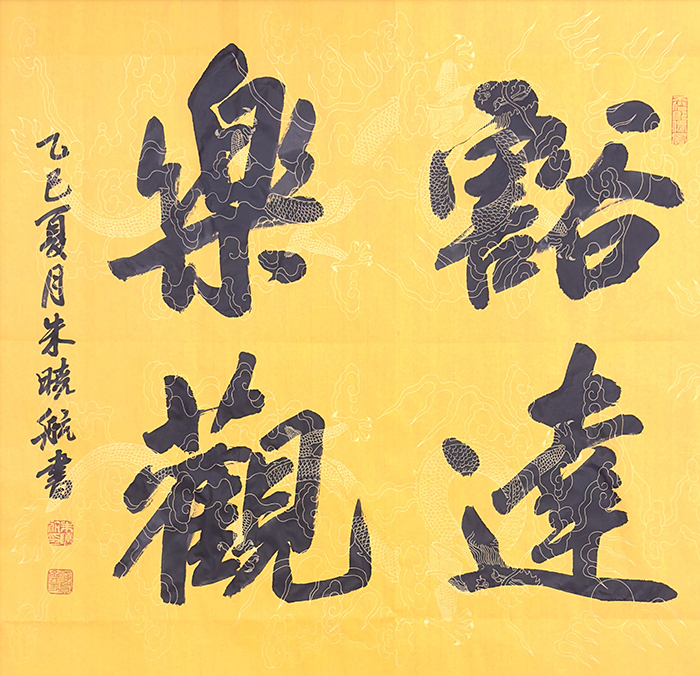 豁達
樂觀
乙巳夏月朱曉航書